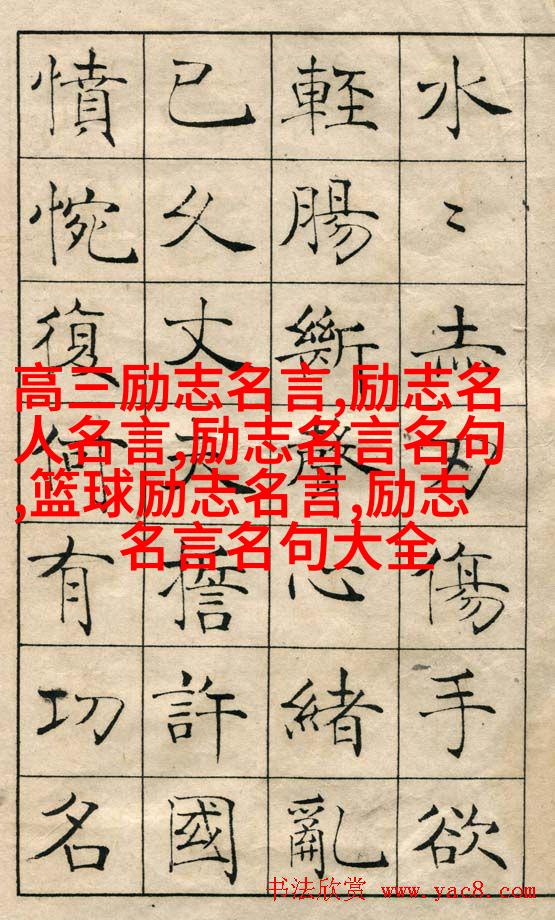 水〻赤刃傷手欲
輕腸斷聲心緒亂
已久丈夫誓許國
憤惋復何有功名
高三励志名言,励志名
人名言,励志名言名句
,篮球励志名言,励志
名言名句大全
书法欣赏 www.yac8.com